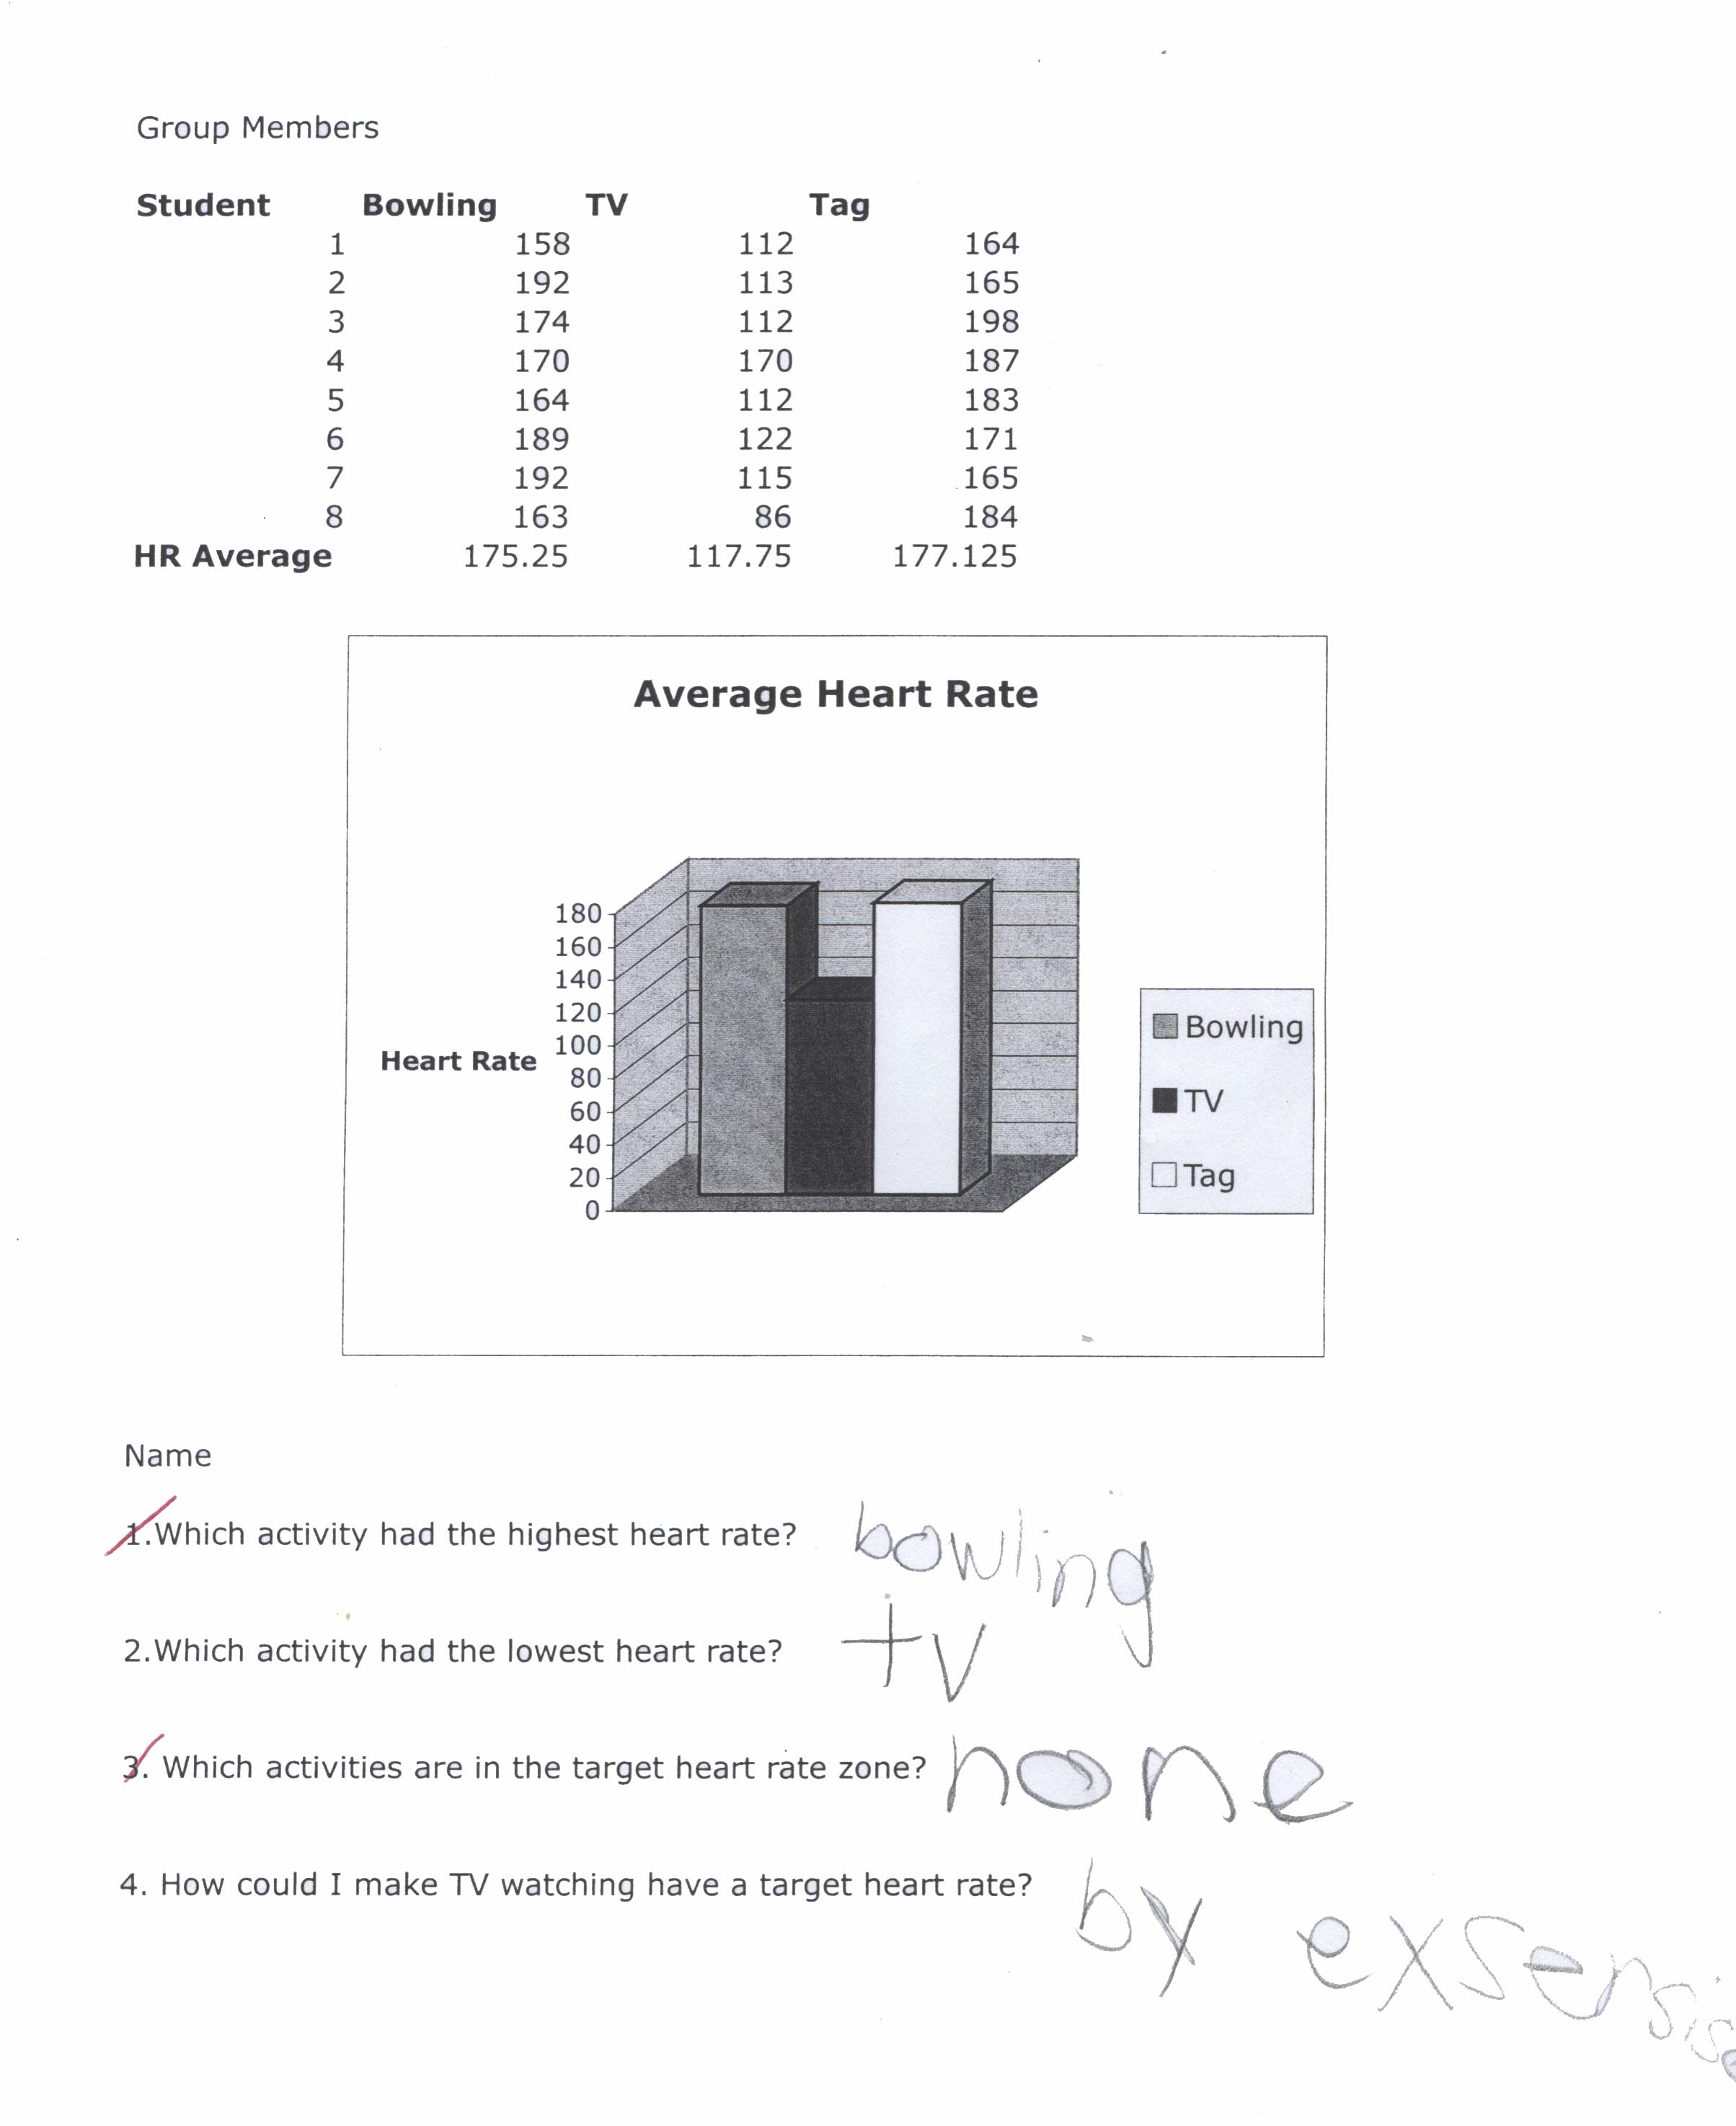 Group Members
Student Bowling TV Tag
1 158 112 164
2 192 113 165
3 174 112 198
4 170 170 187
5 164 112 183
6 189 122 171
7 192 115 165
8 163 86 184
HR Average 175.25 117.75 177.125
Average Heart Rate
180
160
140
120
100
80
60
40
20
0
Heart Rate
Bowling
TV
Tag
Name
1.Which activity had the highest heart rate? bowling
2.Which activity had the lowest heart rate? tv
3. Which activities are in the target heart rate zone? none
4. How could I make TV watching have a target heart rate? by